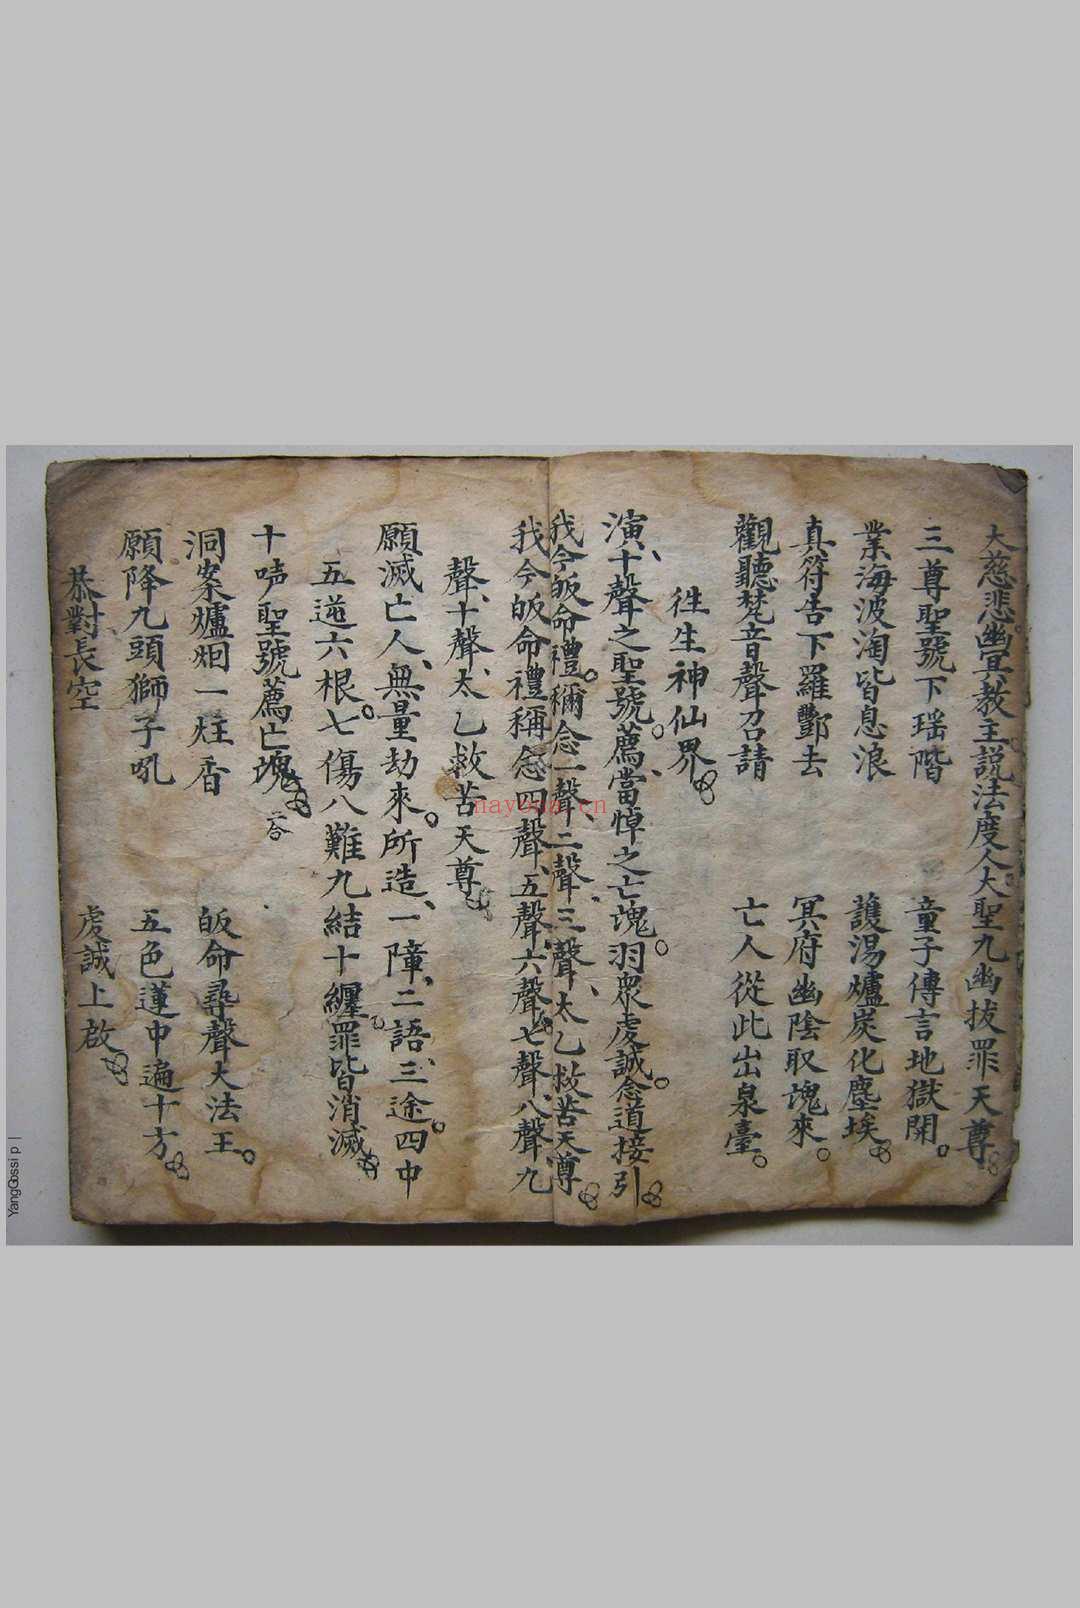 大慈悲幽冥教主説法度人大聖九幽拔罪天尊
三尊聖號下瑶階 童子傳言地獄開
業海波淘皆息浪 護湯爐炭化塵埃
真符告下羅酆去 冥府幽陰取塊來
觀聽梵音聲召請 亡人從此出泉臺
徃生神仙界
演十聲之聖號薦當悼之亡塊羽衆虔誠念道接引
我今皈命禮稱念一聲二聲三聲太乙救苦天尊
我今皈命禮稱念四聲五聲六聲七聲八聲九
聲十聲太乙救苦天尊
願滅亡人無量劫來所造一障二語三途四中
五逆六根七傷八難九結十纏罪皆消滅
十吉聖號薦亡塊 答
洞案爐烟一炷香 皈命尋聲大法王
願降九頭獅子吼 五色蓮中遍十方
恭對長空 虔誠上啟
nayoua.cn
YangGossi p |